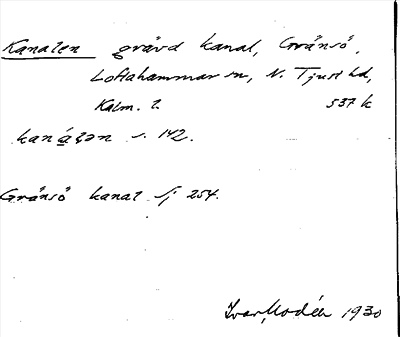 Kanalen grävd kanal, Gränsö,
Loftahammar sn, N. Tjust hd,
Kalm. l. 537 k
kanálən s. 142.
Gränsö kanal Sj 254.
Ivar Modéer 1930